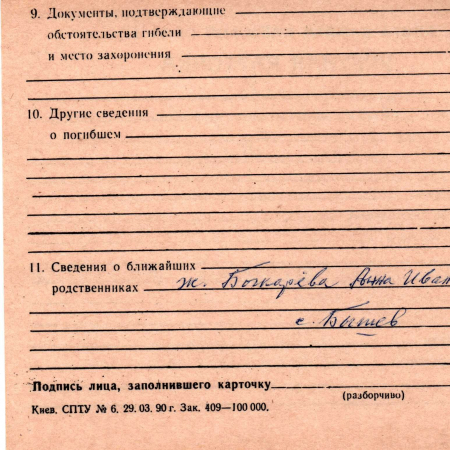 9. Документы, подтверждающие
обстоятельства гибели
и место захоронения
10. Другие сведения
о погибшем
11. Сведения о ближайших
родственниках ж. Бочкарёва Анна Иван
с. Бышев
Подпись лица, заполнившего карточку
(разборчиво)
Киев. СПТУ № 6. 29. 03. 90 г. Зак. 409—100 000.